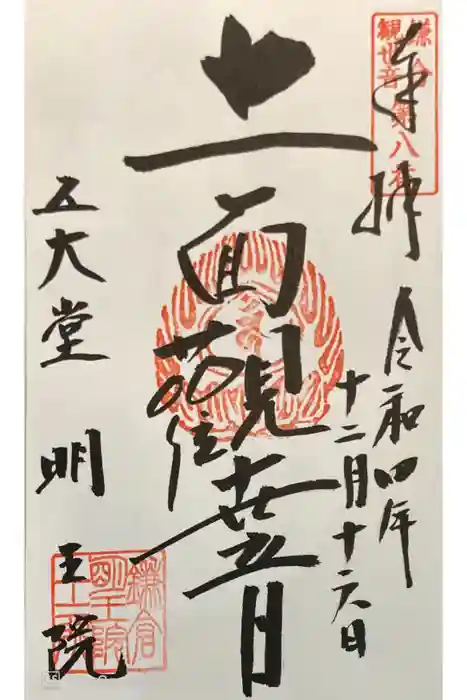 鎌倉
観世音
第八番
奉拝
令和四年
十二月十六日
十一面觀世音
五大堂
明王院
鎌倉
明王院